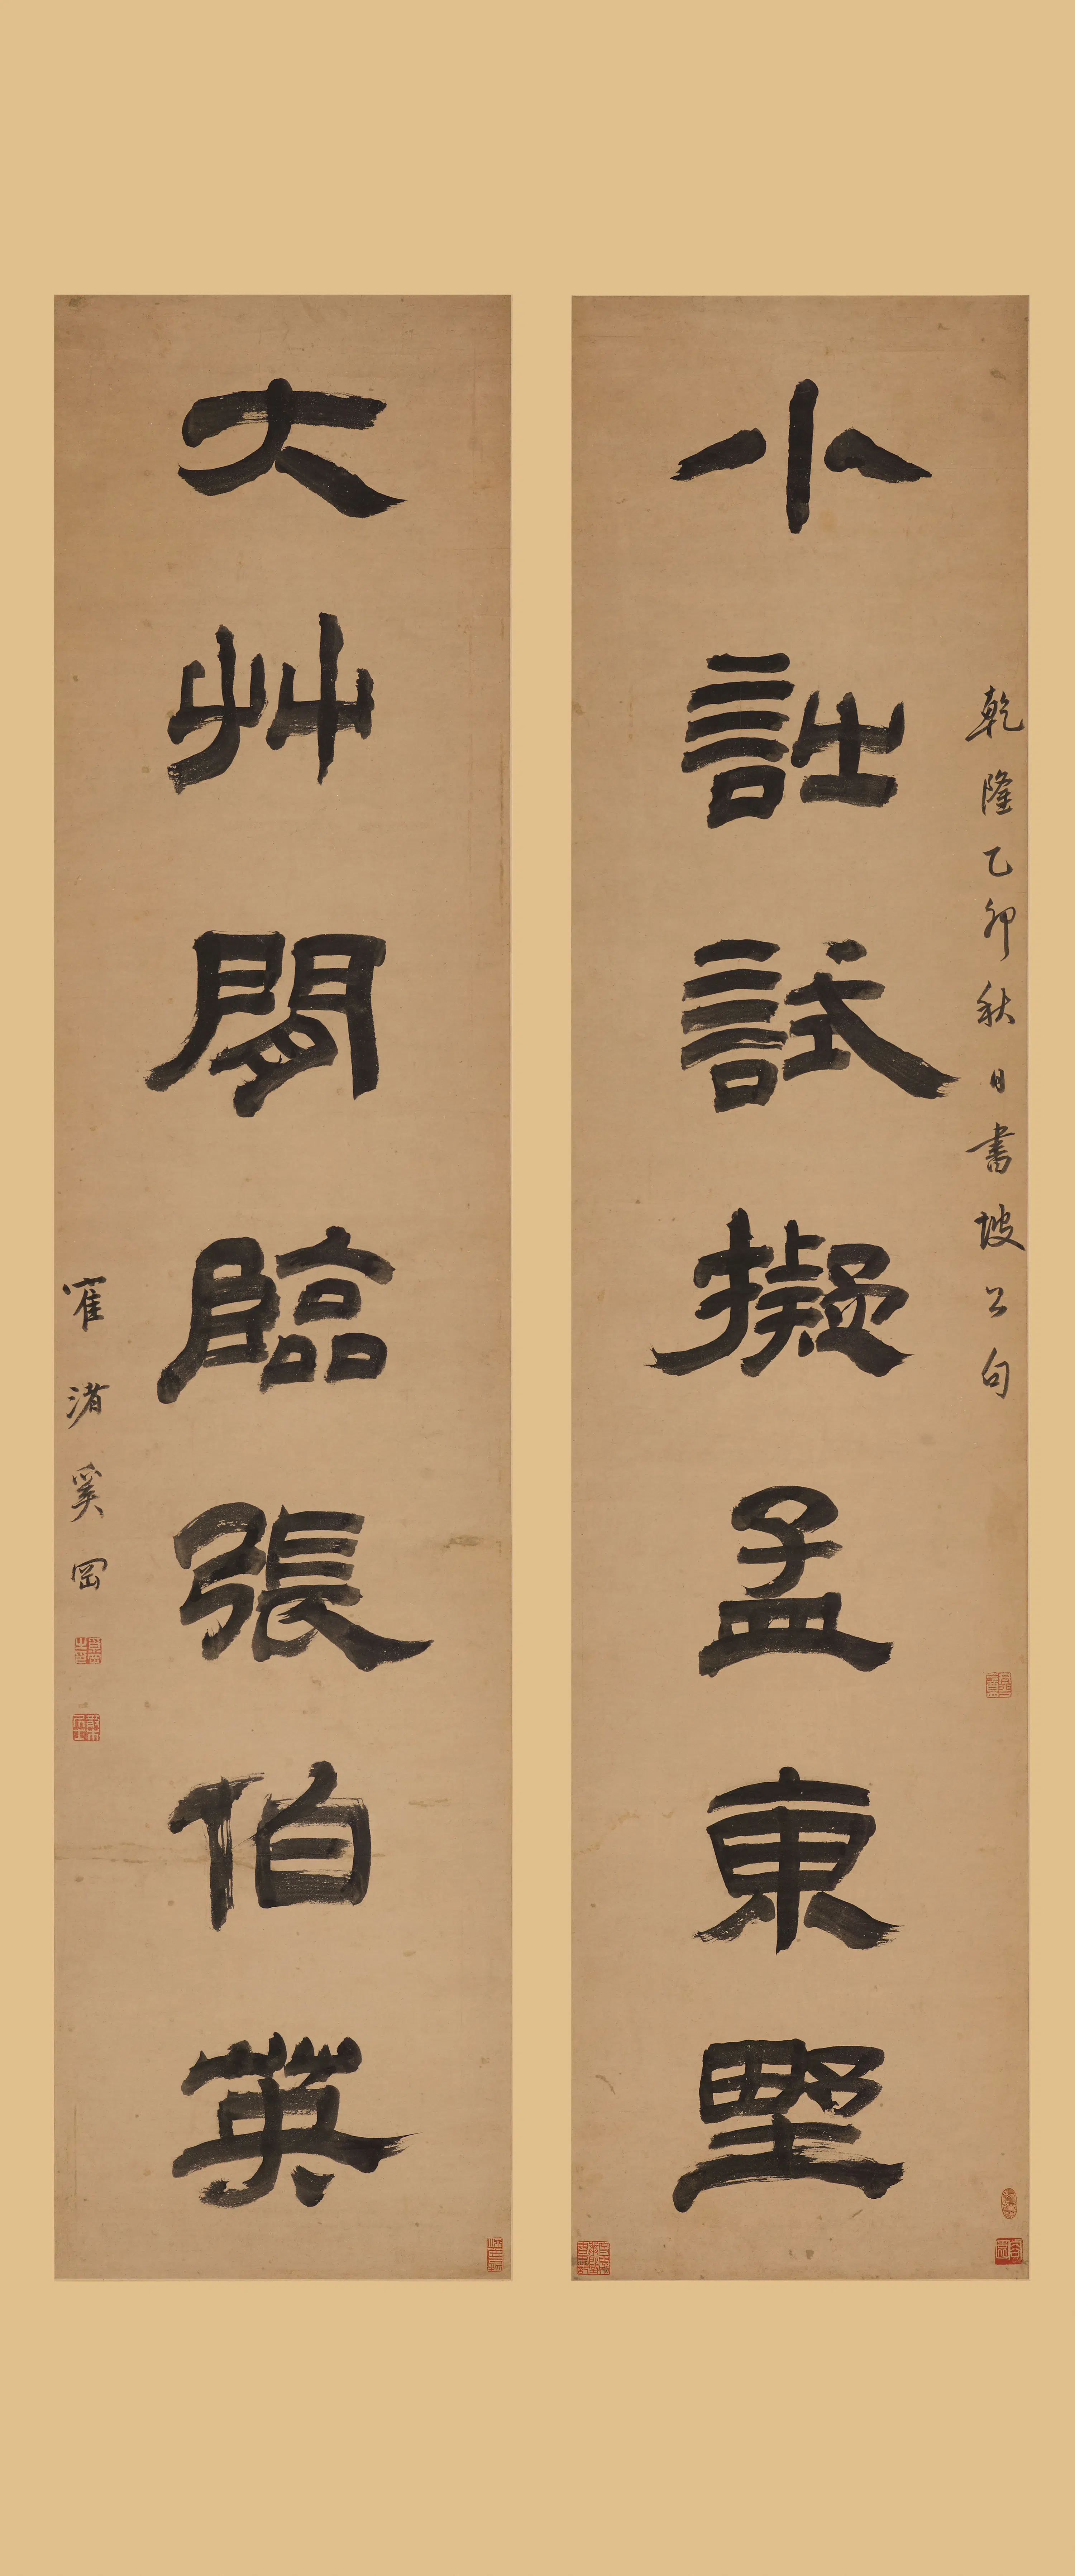 乾隆乙卯秋日書坡公句
小詘試擬孟東埜
大艸閒臨張伯英
奚岡